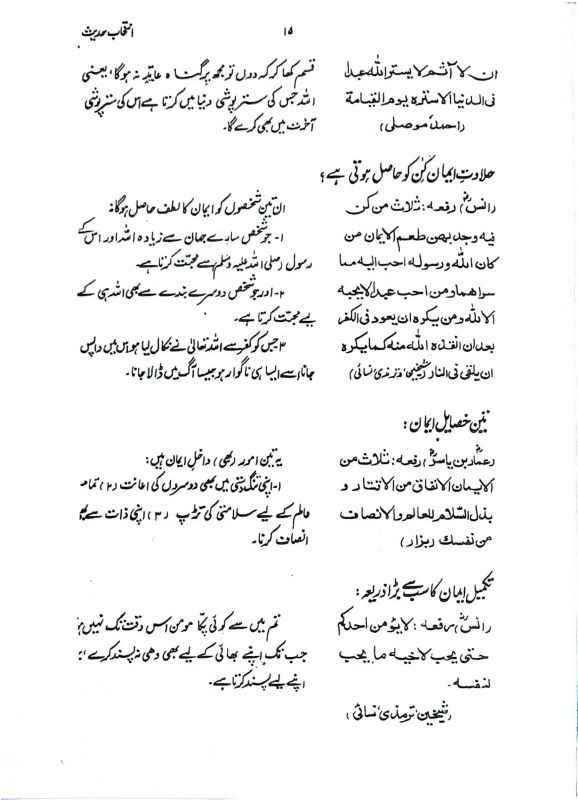 انتخاب حدیث
۱۵
ان لا آثم لا یستر اللہ عبدا
فی الدنیا الا سترہ یوم القیامة
(احمد، موصلی)
قسم کھا کر کہہ دوں تو مجھ پر گناہ عاید نہ ہوگا، یعنی
اللہ جس کی ستر پوشی دنیا میں کرتا ہے اس کی ستر پوشی
آخرت میں بھی کرے گا۔
حلاوتِ ایمان کن کو حاصل ہوتی ہے؟
(انسؓ) رفعہ: ثلاث من کن
فیہ وجد بھن طعم الایمان من
کان اللہ ورسولہ احب الیہ مما
سواھما ومن احب عبدا لا یحبہ
الا للہ ومن یکرہ ان یعود فی الکفر
بعد ان انقذہ اللہ منہ کما یکرہ
ان یلقی فی النار (شیخین، ترمذی، نسائی)
ان تین شخصوں کو ایمان کا لطف حاصل ہوگا:
۱- جو شخص سارے جہان سے زیادہ اللہ اور اس کے
رسول (صلی اللہ علیہ وسلم) سے محبت کرتا ہے۔
۲- اور جو شخص دوسرے بندے سے بھی اللہ ہی کے
لیے محبت کرتا ہے۔
۳ جس کو کفر سے اللہ تعالیٰ نے نکال لیا ہو اس میں واپس
جانا اسے ایسا ہی ناگوار ہو جیسا آگ میں ڈالا جانا۔
تین خصایل ایمان:
(عمار بن یاسرؓ) رفعہ: ثلاث من
الایمان الانفاق من الاقتار و
بذل السلام للعالم والانصاف
من نفسک (بزار)
یہ تین امور (بھی) داخلِ ایمان ہیں:
۱- اپنی تنگ دستی میں بھی دوسروں کی اعانت (۲) تمام
عالم کے لیے سلامتی کی تڑپ (۳) اپنی ذات سے
انصاف کرنا۔
تکمیل ایمان کا سب سے بڑا ذریعہ:
(انسؓ) رفعہ: لا یؤمن احدکم
حتی یحب لاخیہ ما یحب
لنفسہ۔
(شیخین، ترمذی، نسائی)
تم میں سے کوئی پکا مومن اس وقت تک نہیں
جب تک اپنے بھائی کے لیے بھی وھی نہ پسند کرے
اپنے لیے پسند کرتا ہے۔